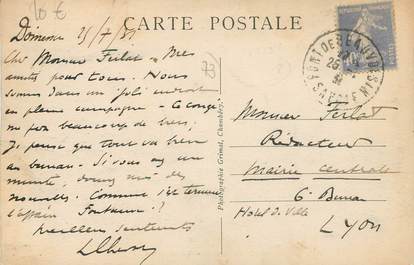 10 €
CARTE POSTALE
Domessin 25/7/31
Cher Monsieur Ferlat - Mes
amitiés pour tous. Nous
sommes dans un joli endroit
en pleine campagne - Ce congé
me fera beaucoup de bien,
Je pense que tout va bien
au bureau. Si vous avez une
minute, donnez moi des
nouvelles. Comment s'est terminée
l'affaire
meilleurs sentiments
73
Photographie Grimal, Chambéry.
PONT DE BEAUVOISIN
SAVOIE
Monsieur Ferlat
Rédacteur
Mairie Centrale
6e Bureau
Hotel de Ville
Lyon